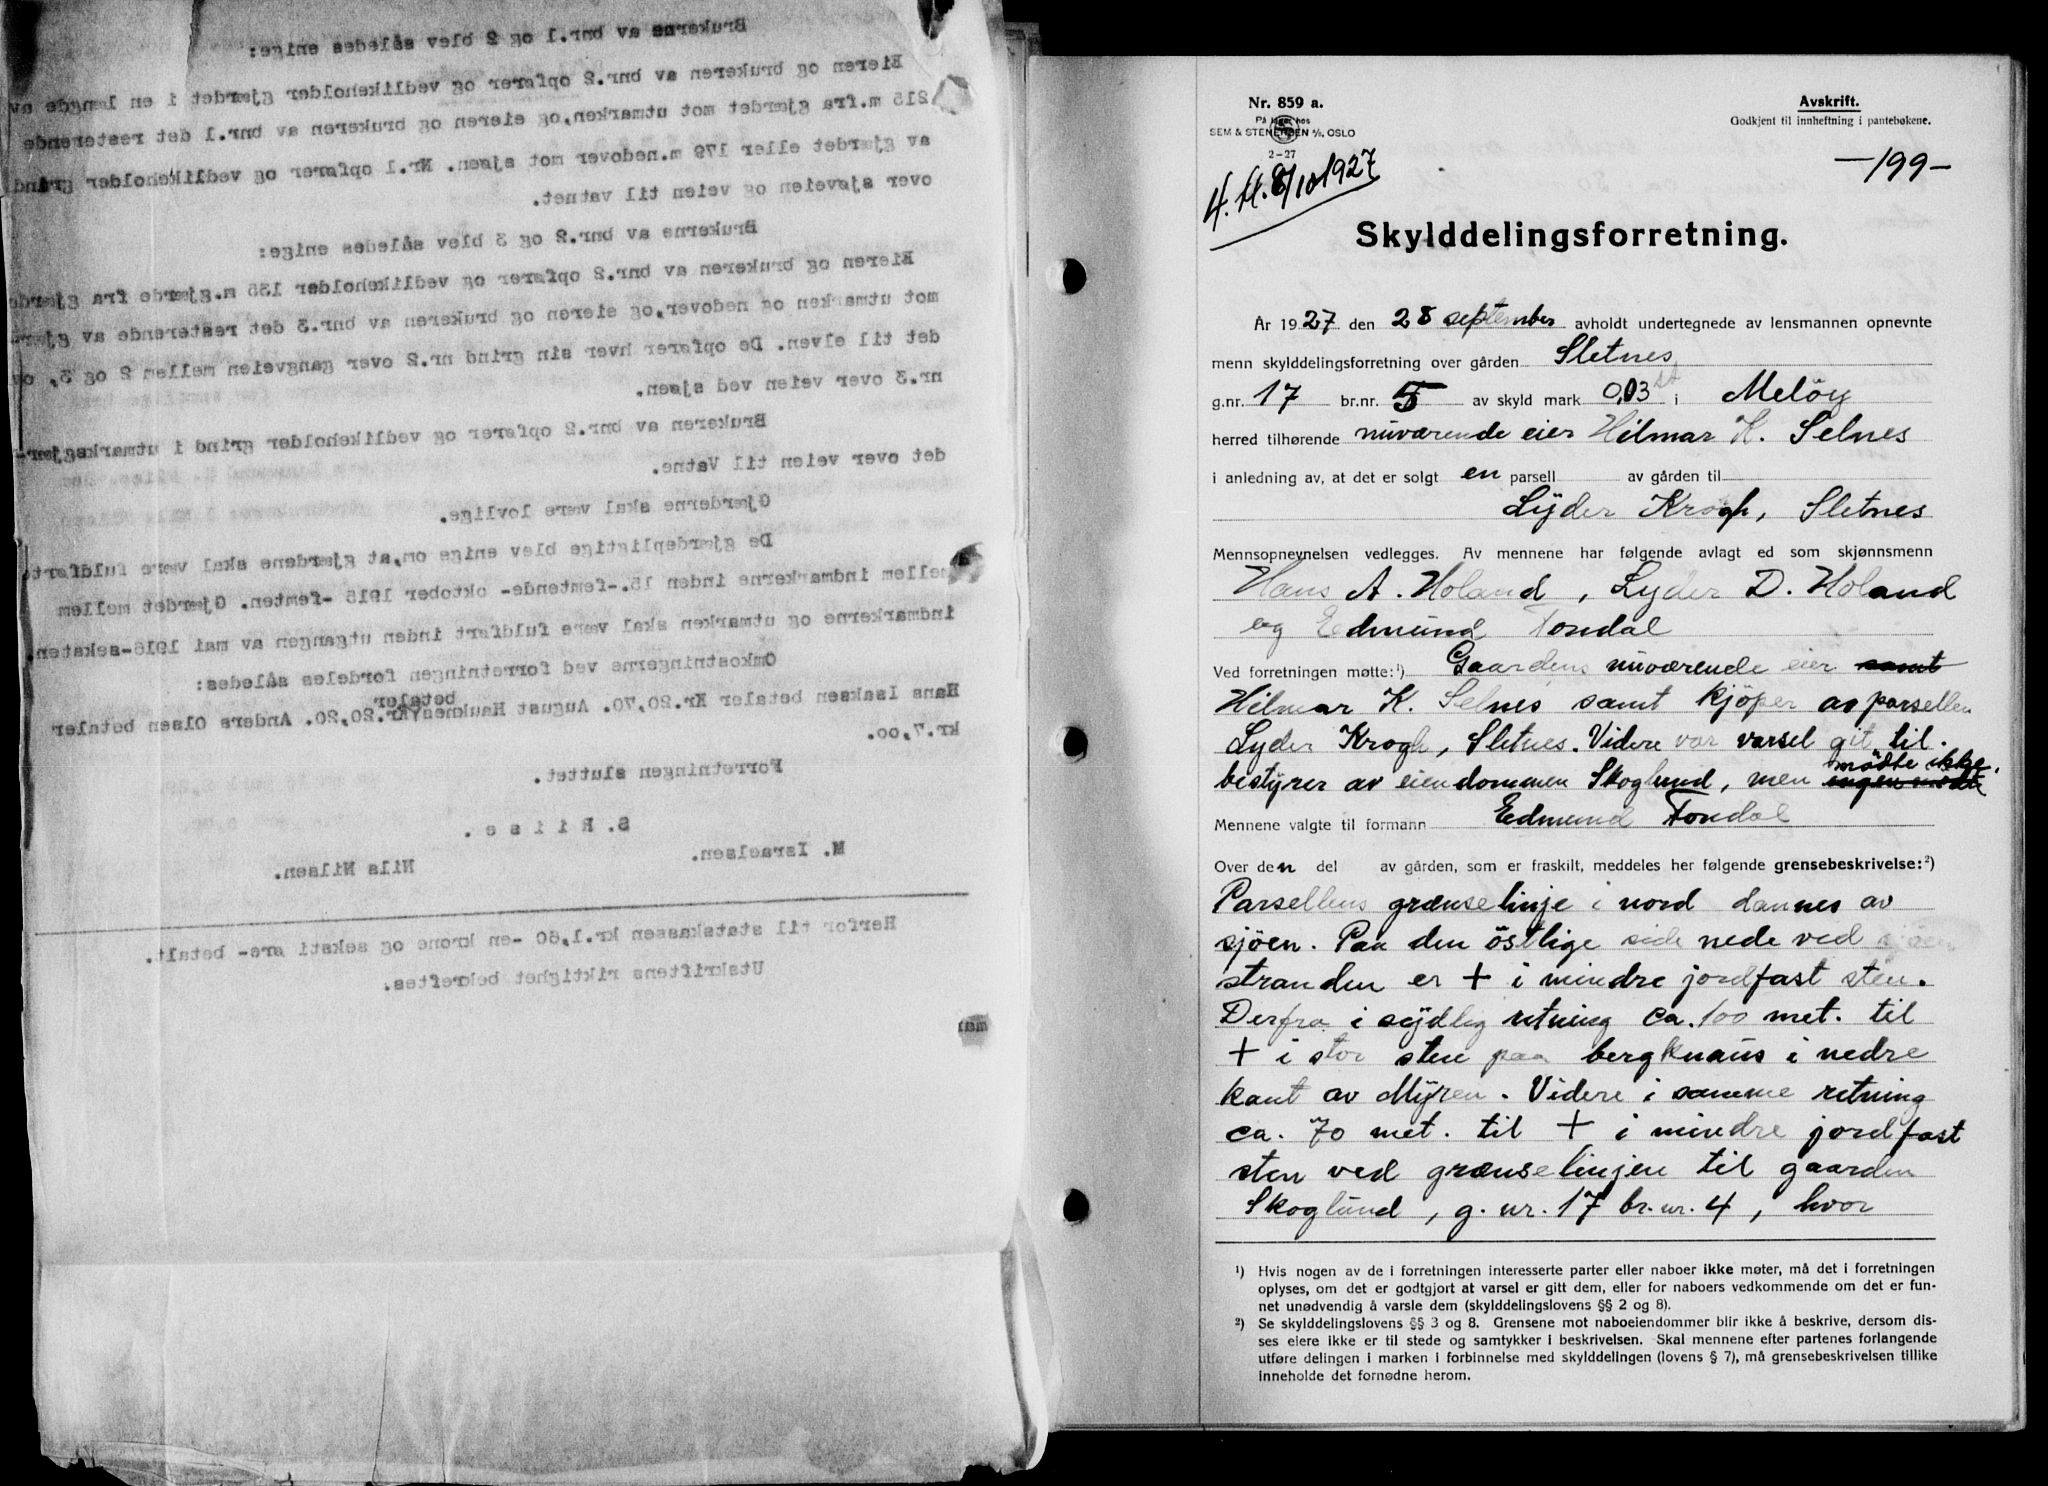 Brukerne av bnr.1 og 2 blev således enige:
Eieren og brukeren av bnr.2 opfører og vedlikeholder gjærdet i en længde av
215 m.fra gjærdet mot utmarken,og eieren og brukeren av bnr.1 det resterende
av gjærdet eller 179 m.nedover mot sjøen. Nr.1 opfører og vedlikeholder grind
over sjøveien og veien til vatnet.
Brukerne av bnr.2 og 3 blev således enige:
Eieren og brukeren av bnr.2 opfører og vedlikeholder 135 m.gjærde fra gjærde
mot utmarken og nedover,og eieren og brukeren av bnr.3 det resterende av gjær
det til elven. De opfører hver sin grind nr.2 over gangveien mellem 2 og 3, ov
nr.3 over veien ved sjøen.
Brukeren av bnr.2 opfører og vedlikeholder grind i utmarksgjær-
det over veien til Vatne.
Gjærderne skal være lovlige.
De gjærdepligtige blev enige om,at gjærdene skal være fuldført
mellem indmarkerne inden 15.-femtende- oktober 1915 -femten. Gjærdet mellem
indmarkerne og utmarken skal være fuldført inden utgangen av mai 1916-seksten.
Omkostningerne ved forretningen fordeles således:
Hans Isaksen betaler Kr.20,70. August Hauknes betaler Kr.20,20. Anders Olsen betaler
kr.7,oo.
Forretningen sluttet.
S. R i i s e .
M. Israelsen. Nils Nilsen.
Herfor til statskassen kr.1,60 -en krone og seksti øre- betalt.
Utskriftens riktighet bekreftes.
Nr. 859 a.
På lager hos
SEM & STENERSEN A/S, OSLO
2-27
Avskrift.
Godkjent til innheftning i pantebøkene.
8/10 1927
-199-
Skylddelingsforretning.
År 1927 den 28 september avholdt undertegnede av lensmannen opnevnte
menn skylddelingsforretning over gården Sletnes
g.nr. 17 br.nr. 5 av skyld mark 0,03 i Melöy
herred tilhørende nuværende eier Hilmar K. Selnes
i anledning av, at det er solgt en parsell av gården til
Lyder Krogh, Sletnes
Mennsopnevnelsen vedlegges. Av mennene har følgende avlagt ed som skjønnsmenn
Hans A. Holand, Lyder D. Holand
og Edmund Fondal
Ved forretningen møtte:¹) Gaardens nuværende eier samt
Hilmar K. Selnes samt kjöper av parsellen
Lyder Krogh, Sletnes. Videre var varsel git til
bestyrer av eiendommen Skoglund, men ingen mödte mödte ikke.
Mennene valgte til formann Edmund Fondal
Over den del av gården, som er fraskilt, meddeles her følgende grensebeskrivelse:²)
Parsellens grænselinje i nord dannes av
sjöen. Paa den östlige side nede ved sjöen
stranden er + i mindre jordfast sten.
Derfra i sydlig retning ca. 100 met. til
+ i stor sten paa bergknaus i nedre
kant av Myren. Videre i samme retning
ca. 70 met. til + i mindre jordfast
sten ved grænselinjen til gaarden
Skoglund, g. nr. 17 br. nr. 4, hvor
¹) Hvis nogen av de i forretningen interesserte parter eller naboer ikke møter, må det i forretningen
oplyses, om det er godtgjort at varsel er gitt dem, eller for naboers vedkommende om det er fun-
net unødvendig å varsle dem (skylddelingslovens §§ 2 og 8).
²) Se skylddelingslovens §§ 3 og 8. Grensene mot naboeiendommer blir ikke å beskrive, dersom dis-
ses eiere ikke er til stede og samtykker i beskrivelsen. Skal mennene efter partenes forlangende
utføre delingen i marken i forbinnelse med skylddelingen (lovens § 7), må grensebeskrivelsen tillike
inneholde det fornødne herom.